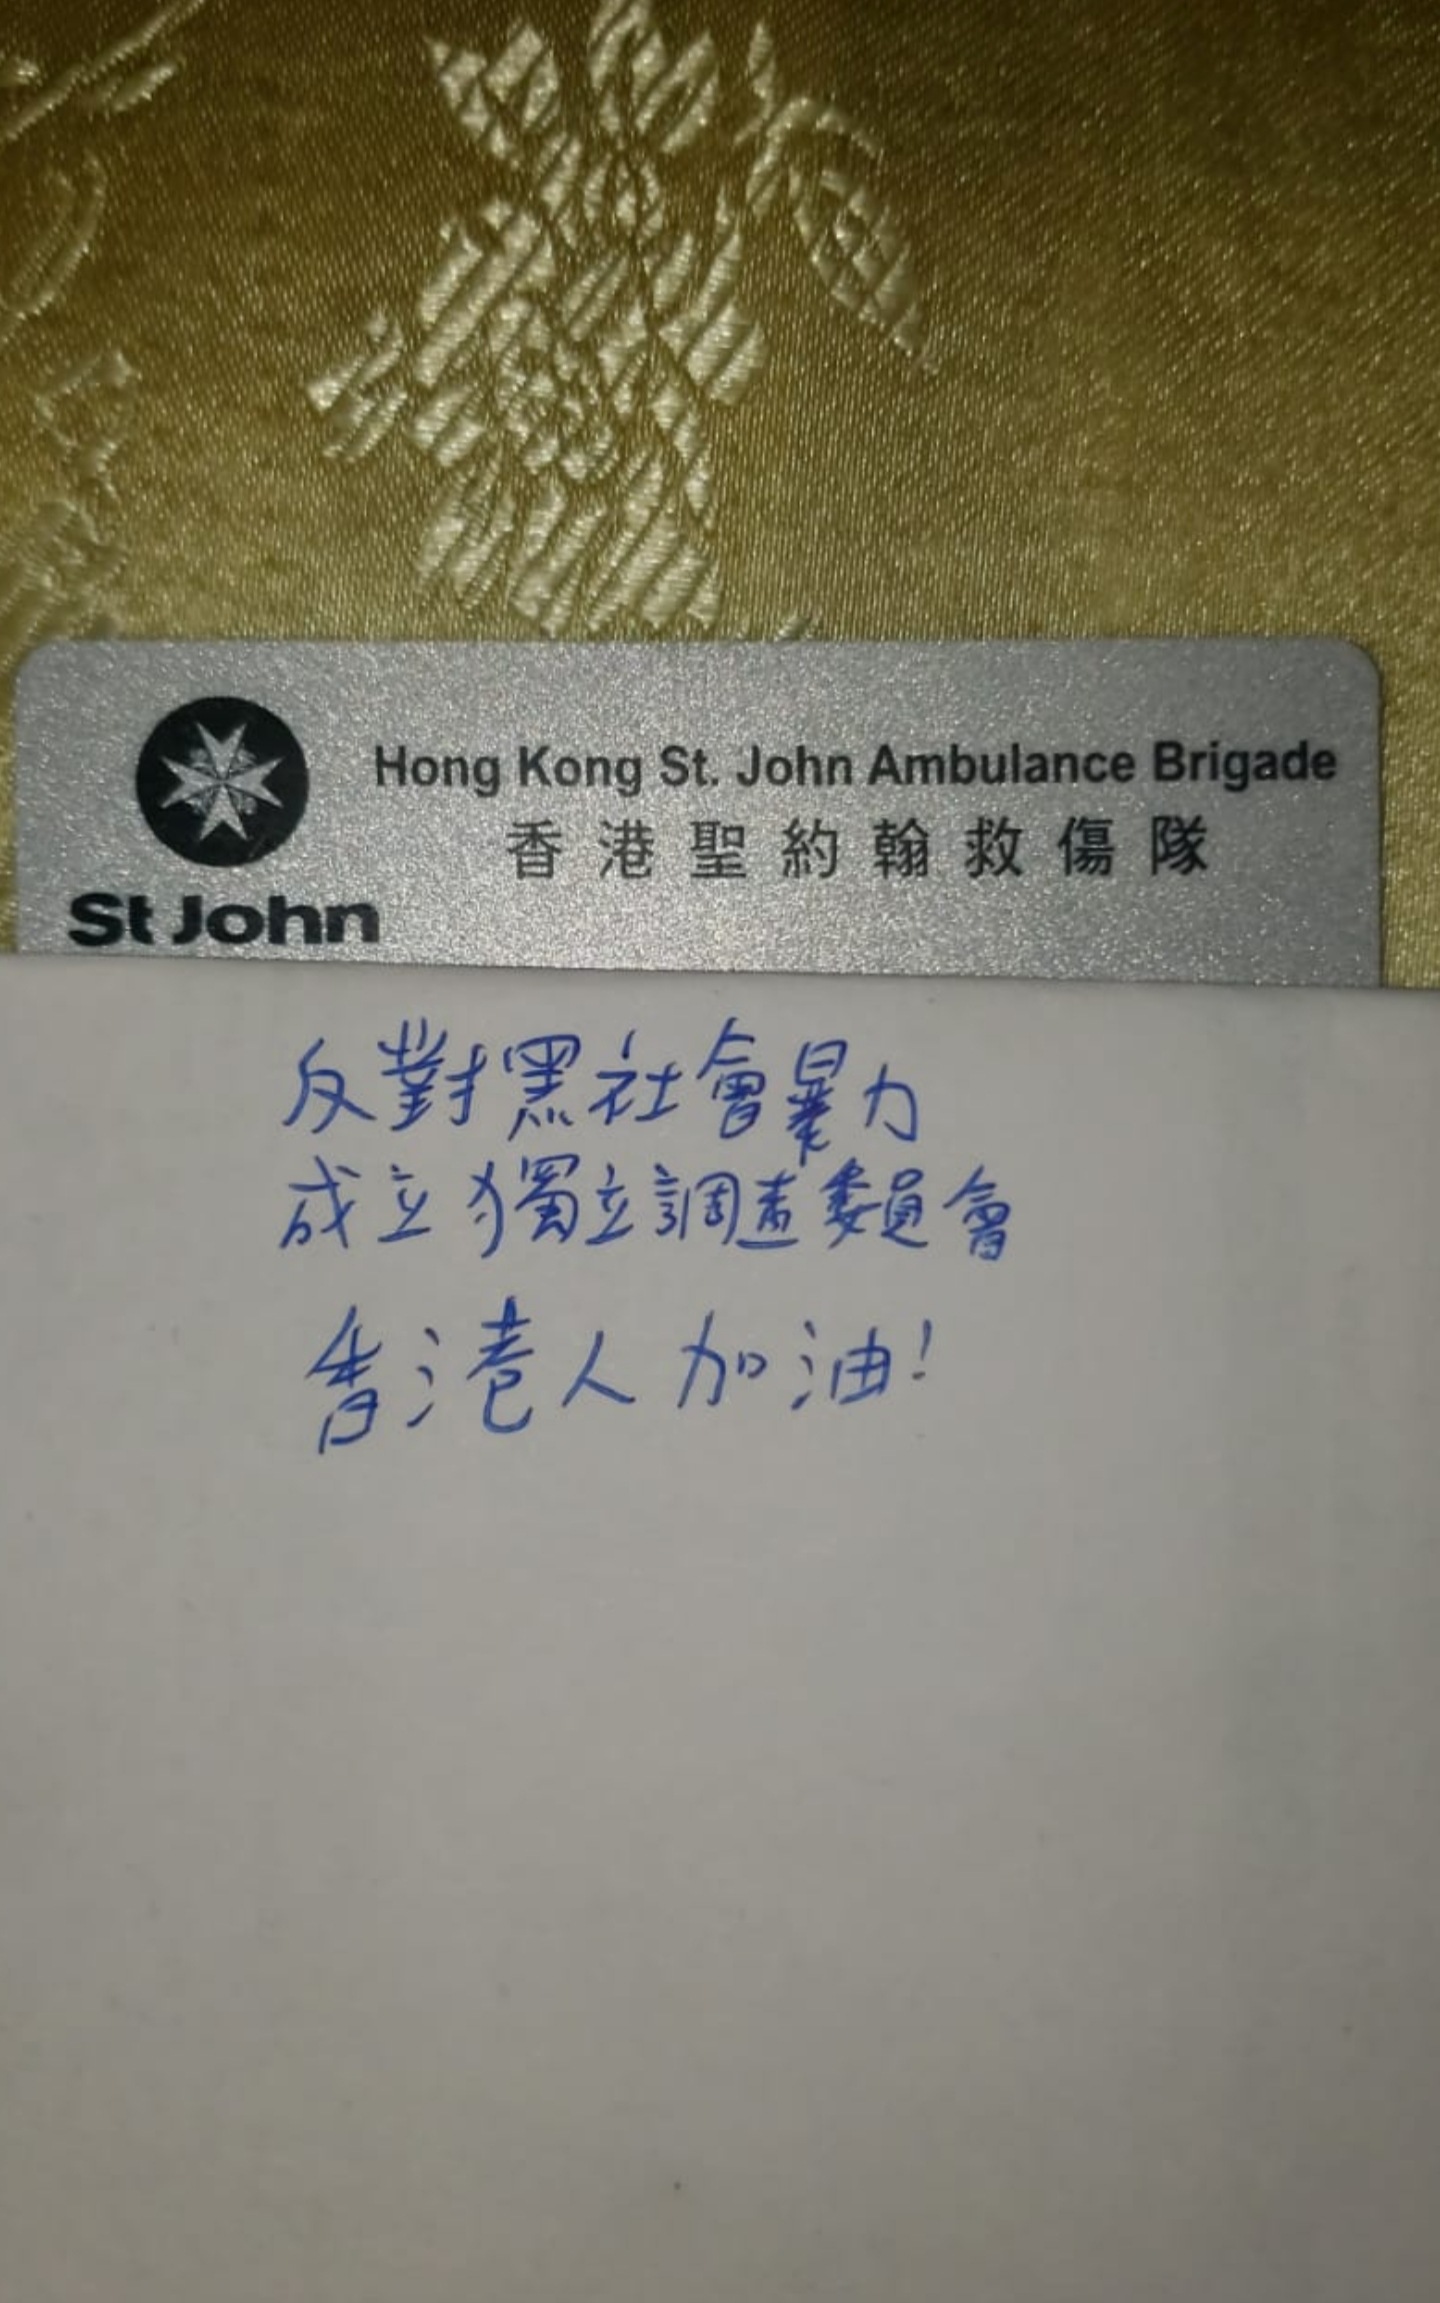 Hong Kong St. John Ambulance Brigade
香港聖約翰救傷隊
St John
反對黑社會暴力
成立獨立調查委員會
香港人加油!